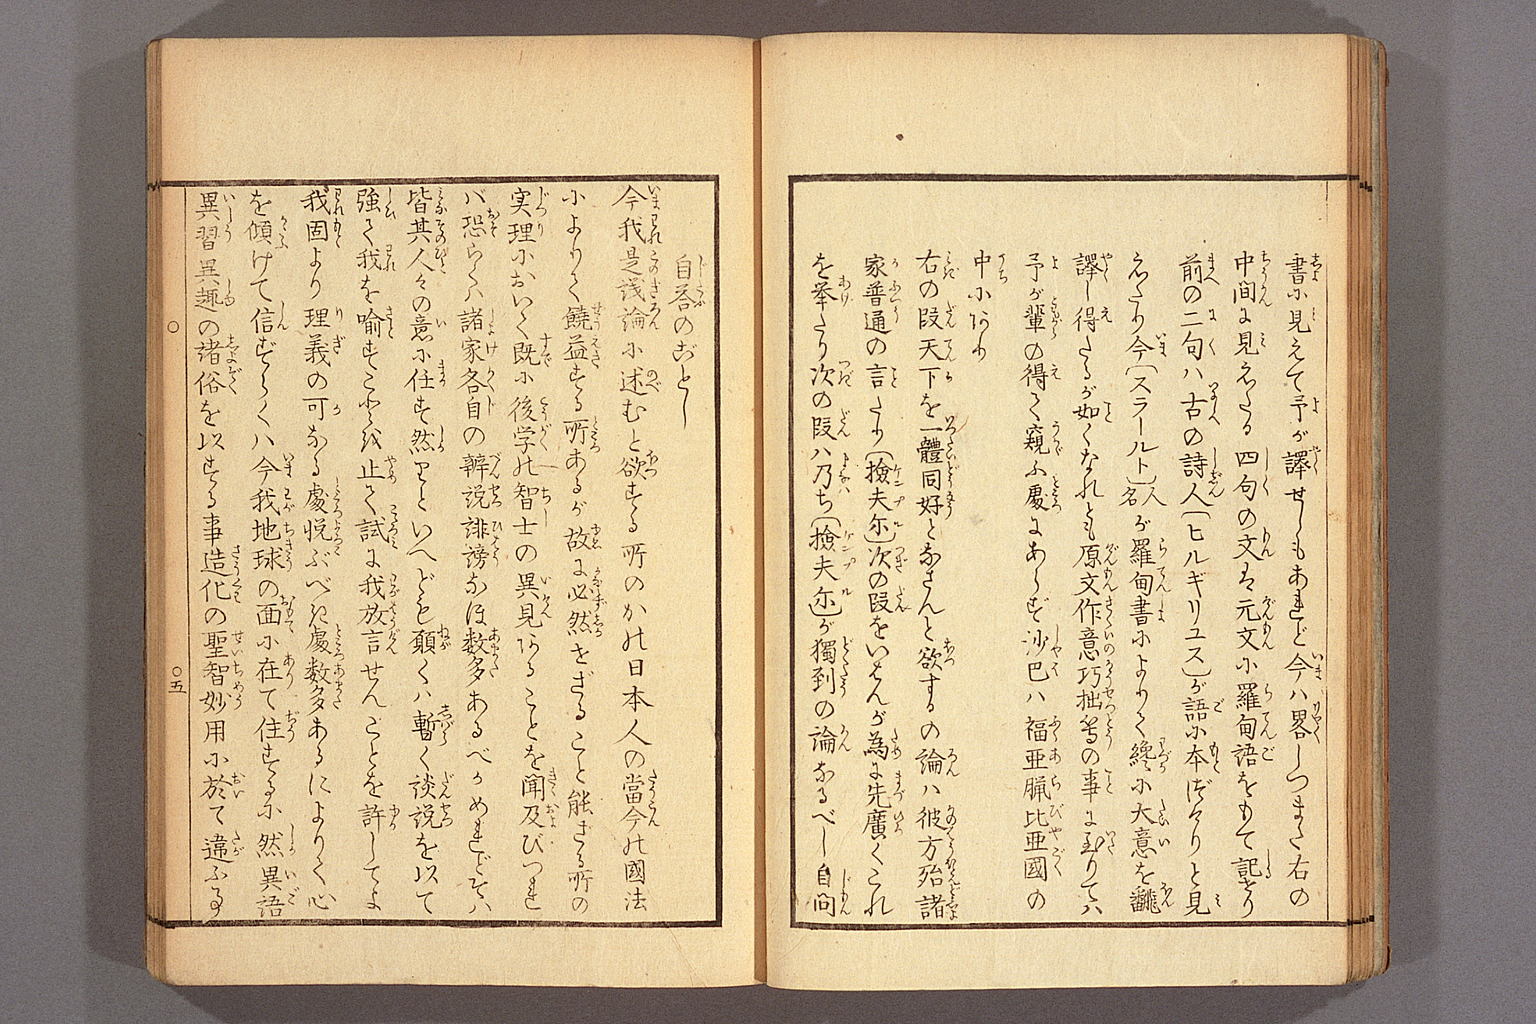 書に見えて予が譯せしもあれど今ハ畧しつまた右の
中間に見えたる四句の文は元文に羅甸語をもて記せり
前の二句ハ古の詩人〔ヒルギリユス〕が語に本づけりと見
えたり今〔スラールト〕人名が羅甸書によりて纔に大意を飜
譯し得たるが如くなれども原文作意巧拙等の事に至りてハ
予が輩の得て窺ふ處にあらず沙巴ハ福亜腊比亜國の
中にあり
右の段天下を一體同好となさんと欲するの論ハ彼方殆諸
家普通の言たり〔撿夫尓〕次の段をいはんが為に先廣くこれ
を挙たり次の段ハ乃ち〔撿夫尓〕が獨到の論なるべし自問
自答のごとし
今我是議論に述むと欲する所のかの日本人の當今の國法
によりて饒益する所あるが故に必然せざること能ざる所の
実理において既に後学の智士の異見あることを聞及びつれ
バ恐らくハ諸家各自の辨説誹謗なほ数多あるべかめれどそハ
皆其人々の意に任す然りといへども願くハ暫く談説を以て
強て我を喩すことを止て試に我放言せんことを許してよ
我固より理義の可なる處悦ぶべき處数多あるによりて心
を傾けて信ずらくハ今我地球の面に在て住するに然異語
異習異趣の諸俗を以する事造化の聖智妙用に於て違ふ事
〇五